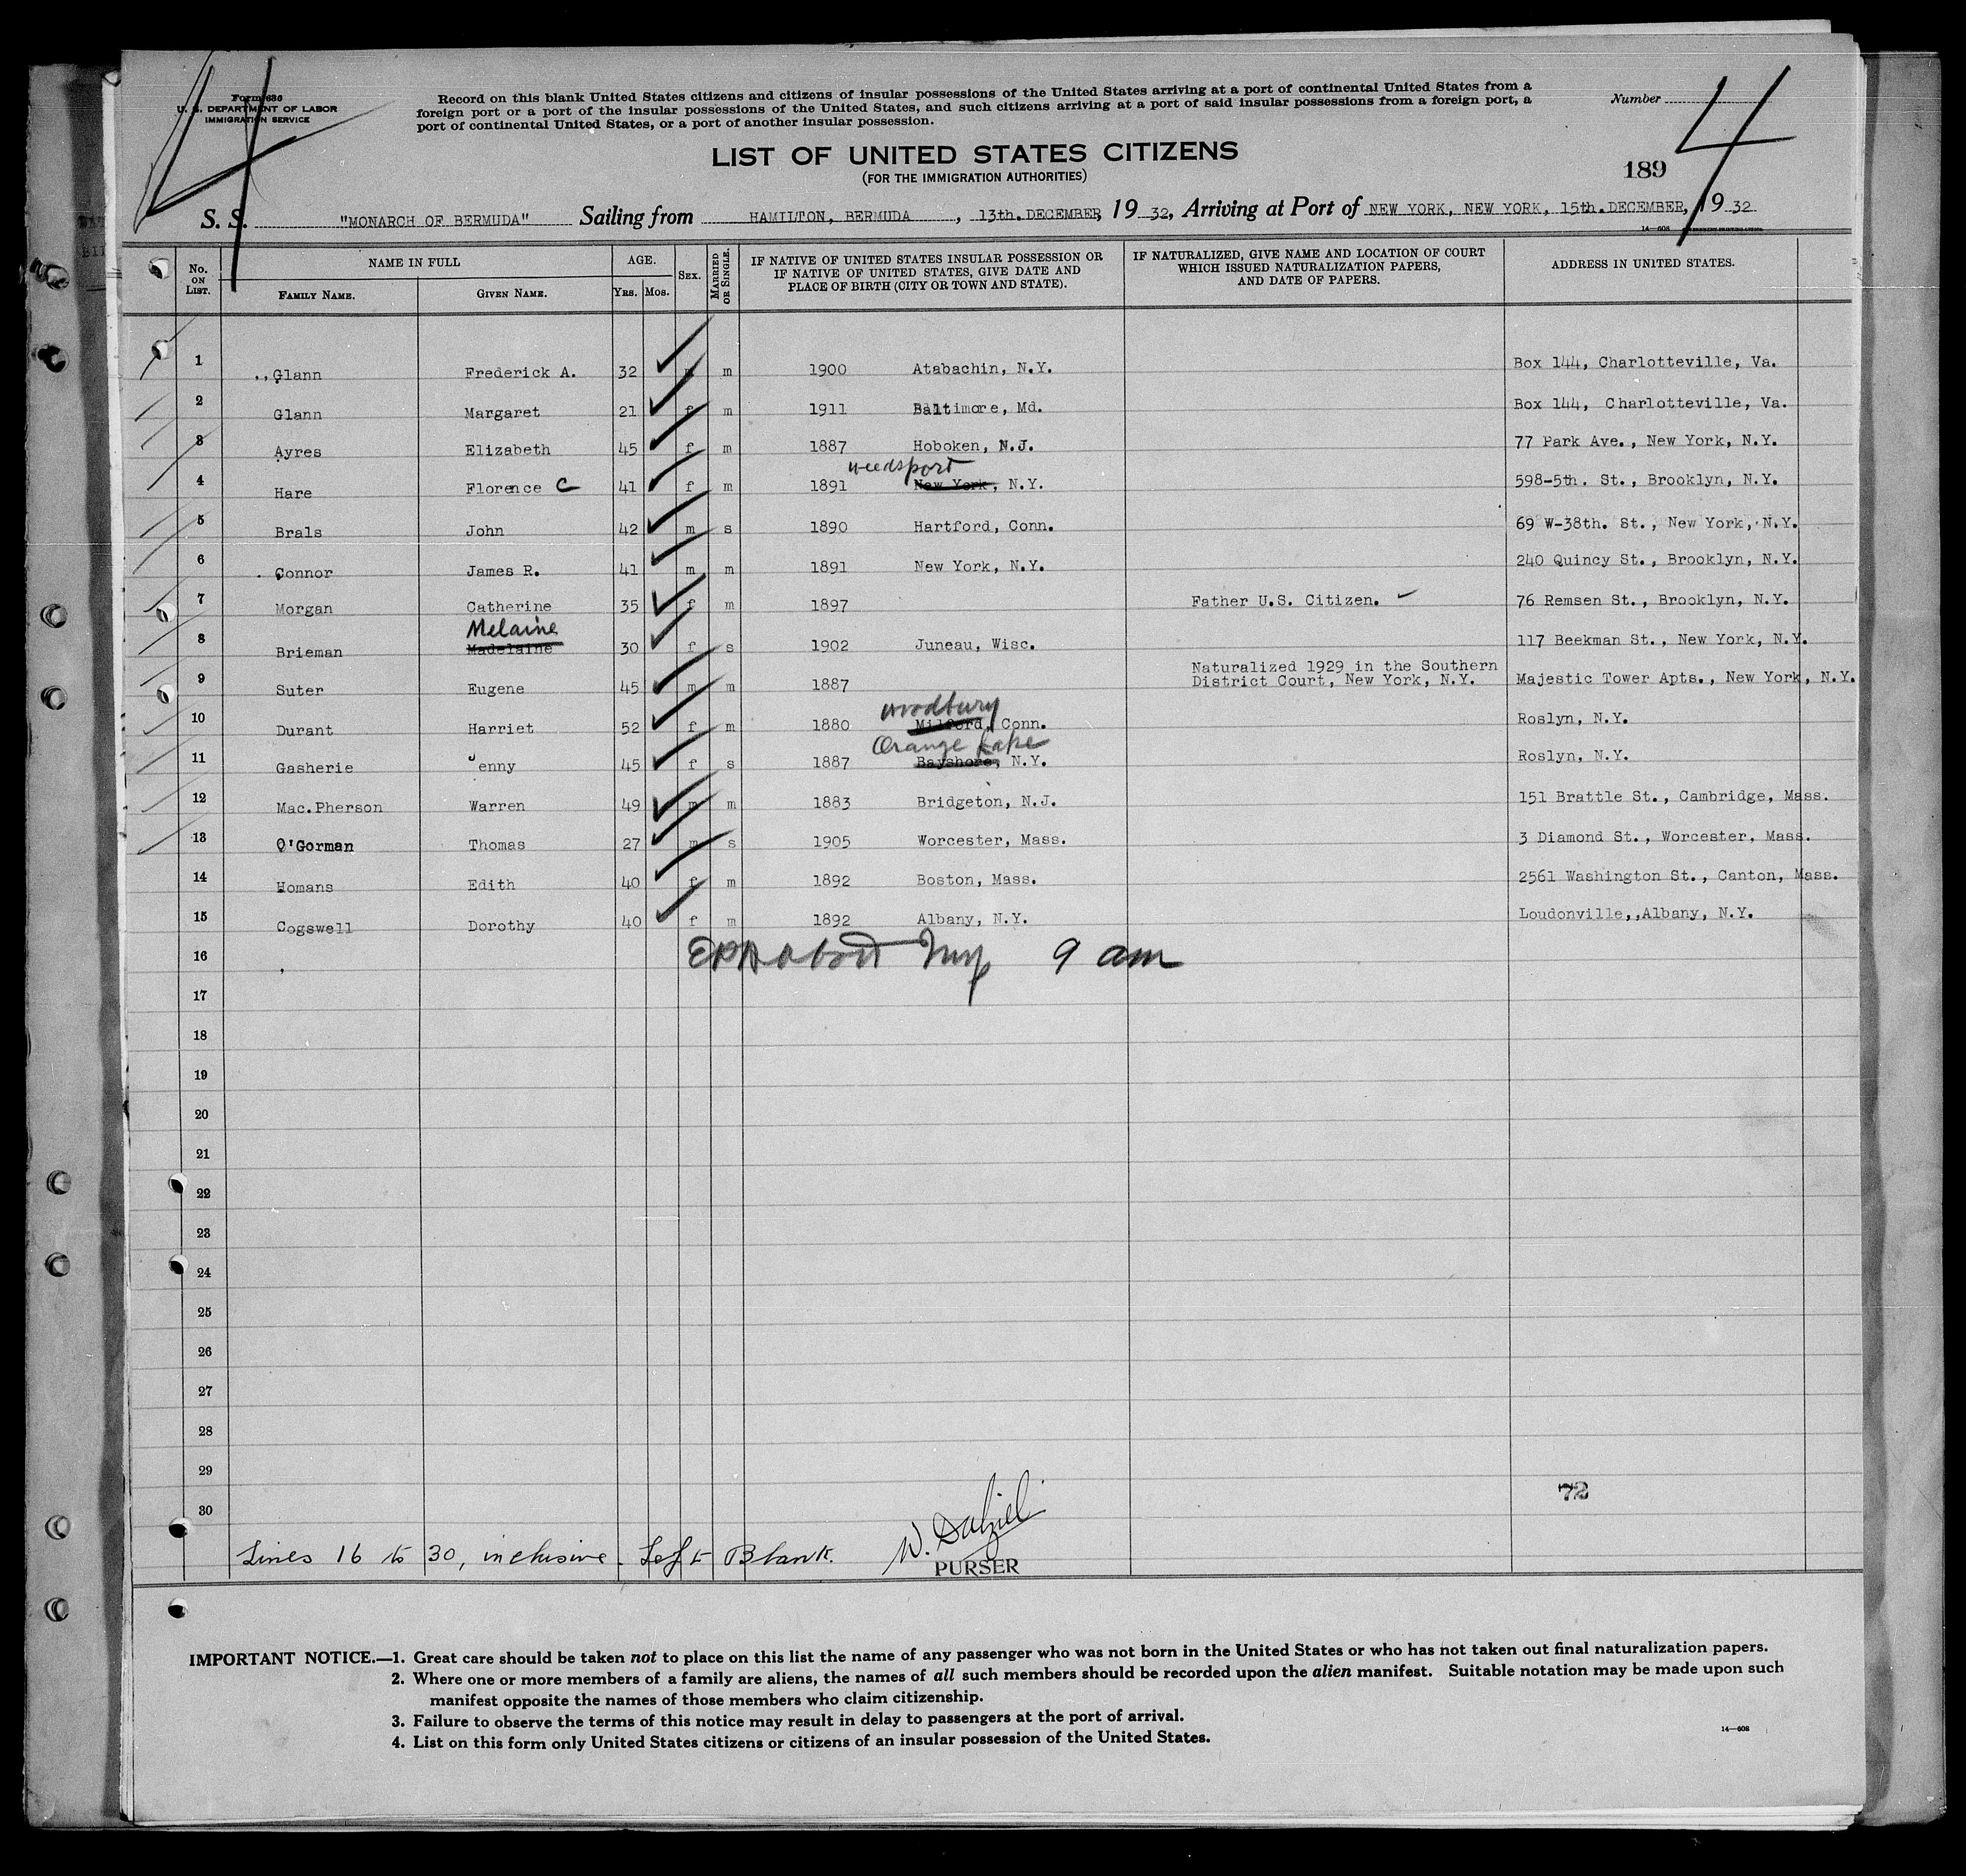 4
4
Form 636
U. S. DEPARTMENT OF LABOR
IMMIGRATION SERVICE
Record on this blank United States citizens and citizens of insular possessions of the United States arriving at a port of continental United States from a
foreign port or a port of the insular possessions of the United States, and such citizens arriving at a port of said insular possessions from a foreign port, a
port of continental United States, or a port of another insular possession.
Number
LIST OF UNITED STATES CITIZENS
(FOR THE IMMIGRATION AUTHORITIES)
189
S. S. "MONARCH OF BERMUDA" Sailing from HAMILTON, BERMUDA, 13th.DECEMBER, 19 32, Arriving at Port of NEW YORK, NEW YORK, 15th.DECEMBER, 19 32
14—608
No. ON LIST. NAME IN FULL FAMILY NAME. GIVEN NAME. AGE. YRS. MOS. SEX. MARRIED OR SINGLE. IF NATIVE OF UNITED STATES INSULAR POSSESSION OR IF NATIVE OF UNITED STATES, GIVE DATE AND PLACE OF BIRTH (CITY OR TOWN AND STATE). IF NATURALIZED, GIVE NAME AND LOCATION OF COURT WHICH ISSUED NATURALIZATION PAPERS, AND DATE OF PAPERS. ADDRESS IN UNITED STATES.
1 Glann Frederick A. 32 m m 1900 Atabachin, N.Y. Box 144, Charlotteville, Va.
2 Glann Margaret 21 f m 1911 Baltimore, Md. Box 144, Charlotteville, Va.
3 Ayres Elizabeth 45 f m 1887 Hoboken, N.J. 77 Park Ave., New York, N.Y.
weedsport
4 Hare Florence C 41 f m 1891 New York, N.Y. 598-5th. St., Brooklyn, N.Y.
5 Brals John 42 m s 1890 Hartford, Conn. 69 W-38th. St., New York, N.Y.
6 Connor James R. 41 m m 1891 New York, N.Y. 240 Quincy St., Brooklyn, N.Y.
7 Morgan Catherine 35 f m 1897 Father U.S. Citizen. 76 Remsen St., Brooklyn, N.Y.
Melaine
8 Brieman Madelaine 30 f s 1902 Juneau, Wisc. 117 Beekman St., New York, N.Y.
9 Suter Eugene 45 m m 1887 Naturalized 1929 in the Southern District Court, New York, N.Y. Majestic Tower Apts., New York, N.Y.
Woodbury
10 Durant Harriet 52 f m 1880 Milford, Conn. Roslyn, N.Y.
Orange Lake
11 Gasherie Jenny 45 f s 1887 Bayshore, N.Y. Roslyn, N.Y.
12 Mac.Pherson Warren 49 m m 1883 Bridgeton, N.J. 151 Brattle St., Cambridge, Mass.
13 O'Gorman Thomas 27 m s 1905 Worcester, Mass. 3 Diamond St., Worcester, Mass.
14 Homans Edith 40 f m 1892 Boston, Mass. 2561 Washington St., Canton, Mass.
15 Cogswell Dorothy 40 f m 1892 Albany, N.Y. Loudonville,,Albany, N.Y.
16 9 am
17
18
19
20
21
22
23
24
25
26
27
28
29
72
30
Lines 16 to 30, inclusive. Left Blank. W. Dalziel
PURSER
IMPORTANT NOTICE.—1. Great care should be taken not to place on this list the name of any passenger who was not born in the United States or who has not taken out final naturalization papers.
2. Where one or more members of a family are aliens, the names of all such members should be recorded upon the alien manifest. Suitable notation may be made upon such
manifest opposite the names of those members who claim citizenship.
3. Failure to observe the terms of this notice may result in delay to passengers at the port of arrival.
4. List on this form only United States citizens or citizens of an insular possession of the United States.
14—608